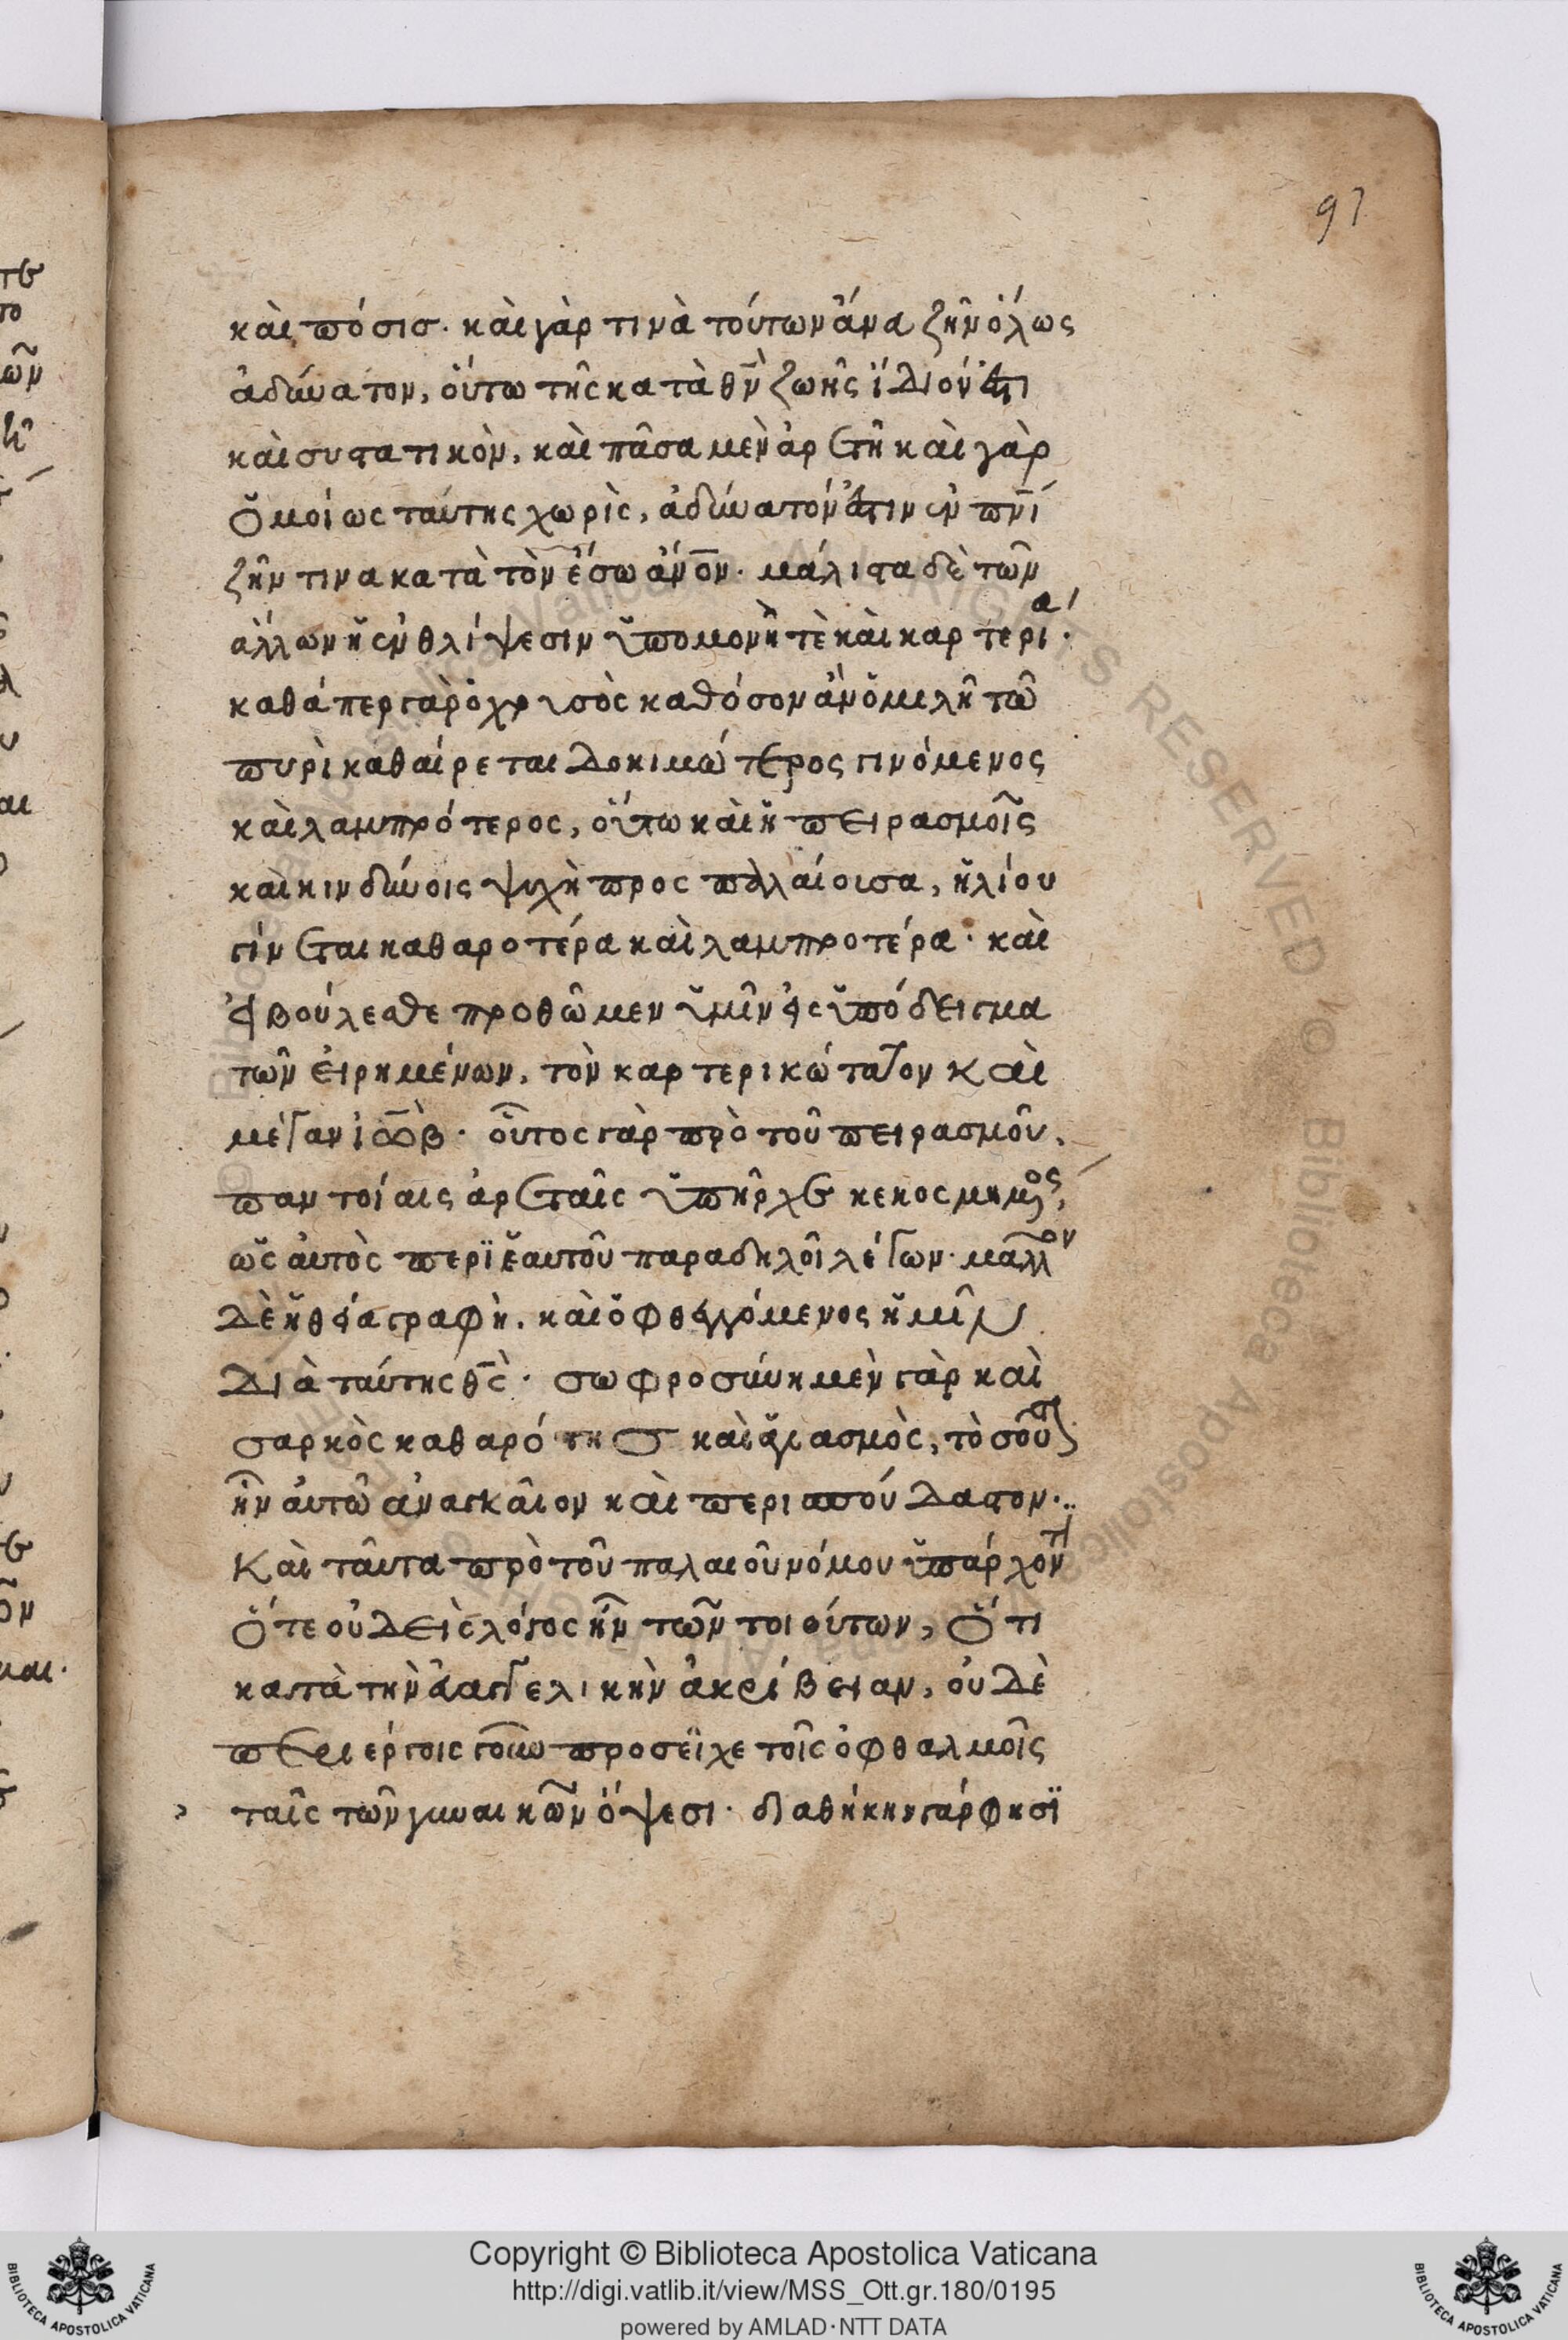 97
καὶ πόσις· καὶ γὰρ τινὰ τούτων ἄνευ ζῆν ὅλως
ἀδύνατον, οὕτω τῆς κατὰ θν ζωῆς ἴδιόν ἐστι
καὶ συστατικὸν, καὶ πᾶσα μὲν ἀρετῆ καὶ γὰρ
ὁμοίως ταύτης χωρὶς, ἀδύνατόν ἐστιν ἐν πνί
ζῆν τινα κατὰ τὸν ἔσω ἄνον· μάλιστα δὲ τῶν
ἄλλων ἡ ἐν θλίψεσιν ὑπομονή τὲ καὶ καρτερία·
καθάπερ γὰρ ὁ χρυσὸς καθόσον ἂν ὁμιλῆ τῶ
πυρὶ καθαίρεται δοκιμώτερος γινόμενος
καὶ λαμπρότερος, οὕτω καὶ ἡ πειρασμοῖς
καὶ κινδύνοις ψυχὴ προσπαλαίουσα, ἡλίου
γίνεται καθαροτέρα καὶ λαμπροτέρα· καὶ
εἰ βούλεσθε προθῶμεν ὑμῖν εἰς ὑπόδειγμα
τῶν εἰρημένων, τὸν καρτερικώτατον καὶ
μέγαν ἰὼβ· οὗτος γὰρ πρὸ τοῦ πειρασμοῦ,
παντοίαις ἀρεταῖς ὑπῆρχε κεκοσμημένος,
ὡς αὐτὸς περὶ ἑαυτοῦ παραδηλοῖ λέγων· μᾶλλον
δὲ ἡ θεία γραφὴ. καὶ ὁ φθεγγόμενος ἡμῖν
διὰ ταύτης θς· σωφροσύνη μὲν γὰρ καὶ
σαρκὸς καθαρότης καὶ ἁγιασμὸς, τὸσοῦτον
ἦν αὐτῶ ἀναγκαῖον καὶ περισπούδαστον·
Καὶ ταῦτα πρὸ τοῦ παλαιοῦ νόμου ὑπάρχοντι
ὅτε οὐδεὶς λόγος ἦν τῶν τοιούτων, ὅτι
κατὰ τὴν εὐαγγελικὴν ἀκρίβειαν, οὐδὲ
περιέργοις γοῦν προσεῖχε τοῖς ὀφθαλμοῖς
ταῖς τῶν γυναικῶν ὄψεσι· διαθήκην γάρ φησὶ
Copyright © Biblioteca Apostolica Vaticana
http://digi.vatlib.it/view/MSS_Ott.gr.180/0195
powered by AMLAD·NTT DATA